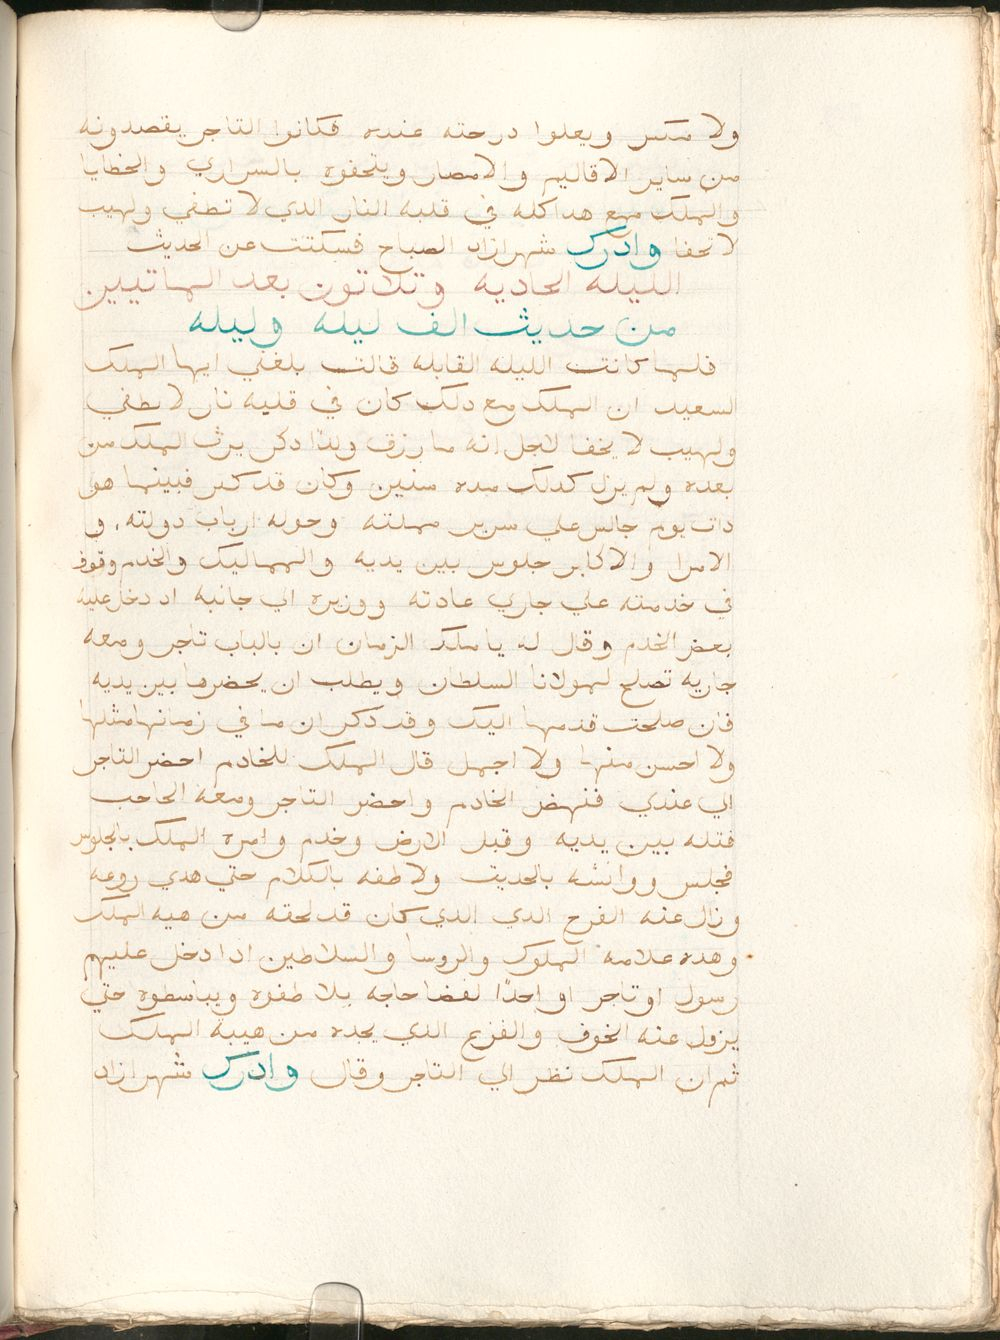 ولا متكس ويعلوا درحته عنده فكانوا التاجر يقصدونه
من ساير الاقاليم والامصار ويتحفوه بالسراري والخطايا
والملك مع هدا كله في قلبه النار الدي لا تطفي ولهيب
لا تحفا وادرك شهرازاد الصباح فسكتت عن الحديث
الليله الحاديه وتلاتون بعد الماتيين
من حديث الف ليله وليله
فلما كانت الليله القابله قالت بلغني ايها الملك
السعيد ان الملك مع دلك كان في قلبه نار لا تطفي
ولهيب لا يخفا لاجل انه ما رزق ولدًا دكر يرث الملك من
بعده ولم يزل كدلك مده سنين وكان قد كبر فبينما هو
دات يوم جالس علي سرير مملته وحوله ارباب دولته و
الامرا والاكابر جلوس بين يديه والمماليك والخدم وقوف
في خدمته علي جاري عادته ووزيره الي جانبه اد دخل عليه
بعض الخدم وقال له يا ملك الزمان ان بالباب تاجر ومعه
جاريه تصلح لمولانا السلطان ويطلب ان يحضرها بين يديه
فان صلحت قدمها اليك وقد دكر ان ما في زمانها مثلها
ولا احسن منها ولا اجمل قال الملك للخادم احضر التاجر
الي عندي فنهض الخادم واحضر التاجر ومعه الحاجب
فتله بين يديه وقبل الارض وخدم وامره الملك بالجلوس
فجلس ووانسه بالحديث ولاطفه بالكلام حتي هدي روعه
وزال عنه الفرح الدي الدي كان قد لحقه من هيه الملك
وهده علامه الملوك والروسا والسلاطين ادا دخل عليهم
رسول او تاجر او احدًا لقضا حاجه يلاطفوه ويباسطوه حتي
يزول عنه الخوف والفزع الدي يجده من هيبة الملك
ثم ان الملك نظر الي التاجر وقال وادرك شهرازاد